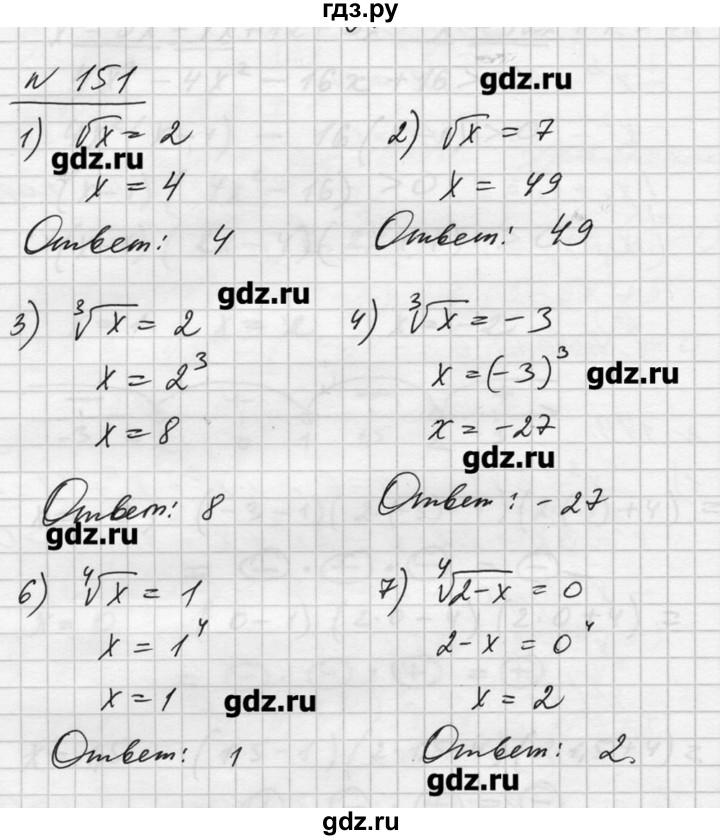 гдз.ру
N 151
gdz.ru
1) √x = 2
gdz.ru
x = 4
Ответ: 4
2) √x = 7
x = 49
Ответ: 49
gdz.ru
3) ∛x = 2
x = 2³
x = 8
Ответ: 8
gdz.ru
4) ∛x = -3
x = (-3)³ gdz.ru
x = -27
gdz.ru
Ответ: -27
6) ∜x = 1
x = 1⁴
x = 1 gdz.ru
Ответ: 1
7) ∜2-x = 0
2-x = 0⁴
x = 2
Ответ: 2.
gdz.ru
gdz.ru